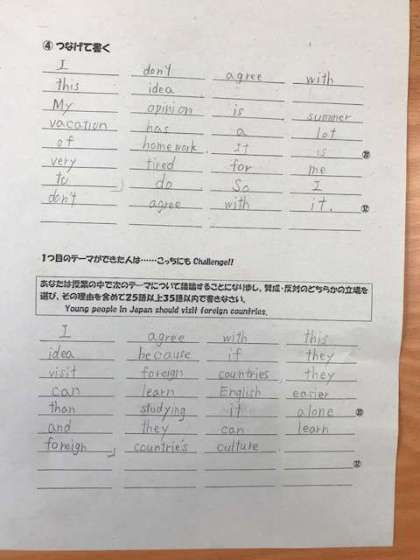 ④ つなげて書く
I don't agree with
this idea.
My opinion is summer
vacation has a lot
of homework. It is ⑳
very tired for me
to do. So I
don't agree with it. ㉜
1つ目のテーマができた人は……こっちにも Challenge!!
あなたは授業の中で次のテーマについて議論することになりました。賛成・反対のどちらかの立場を
選び、その理由を含めて25語以上35語以内で書きなさい。
Young people in Japan should visit foreign countries.
I agree with this
idea because if they
visit foreign countries, they
can learn English easier
than studying it alone ⑳
and they can learn
foreign countrie's culture.
㉜